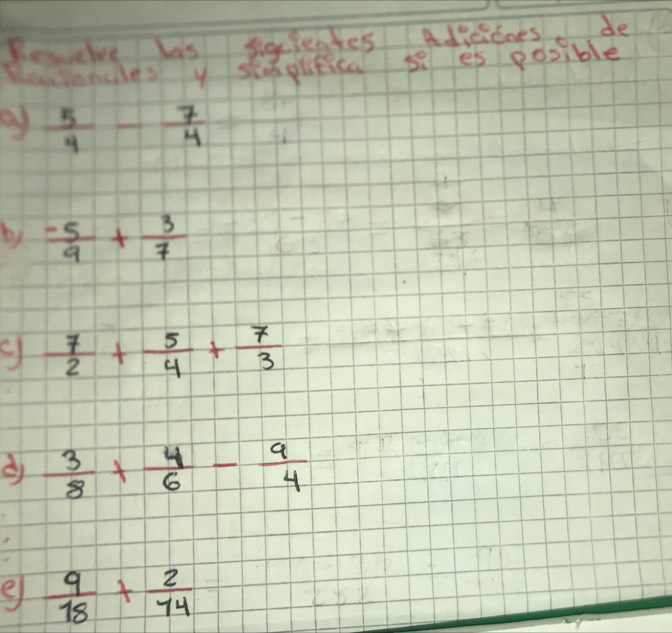 Resuelve las siguientes Adiciones de
Racionales y simplifica si es posible
a) 5/4 - 7/4
b) -5/9 + 3/7
c) 7/2 + 5/4 + 7/3
d) 3/8 + 4/6 - 9/4
e) 9/18 + 2/14